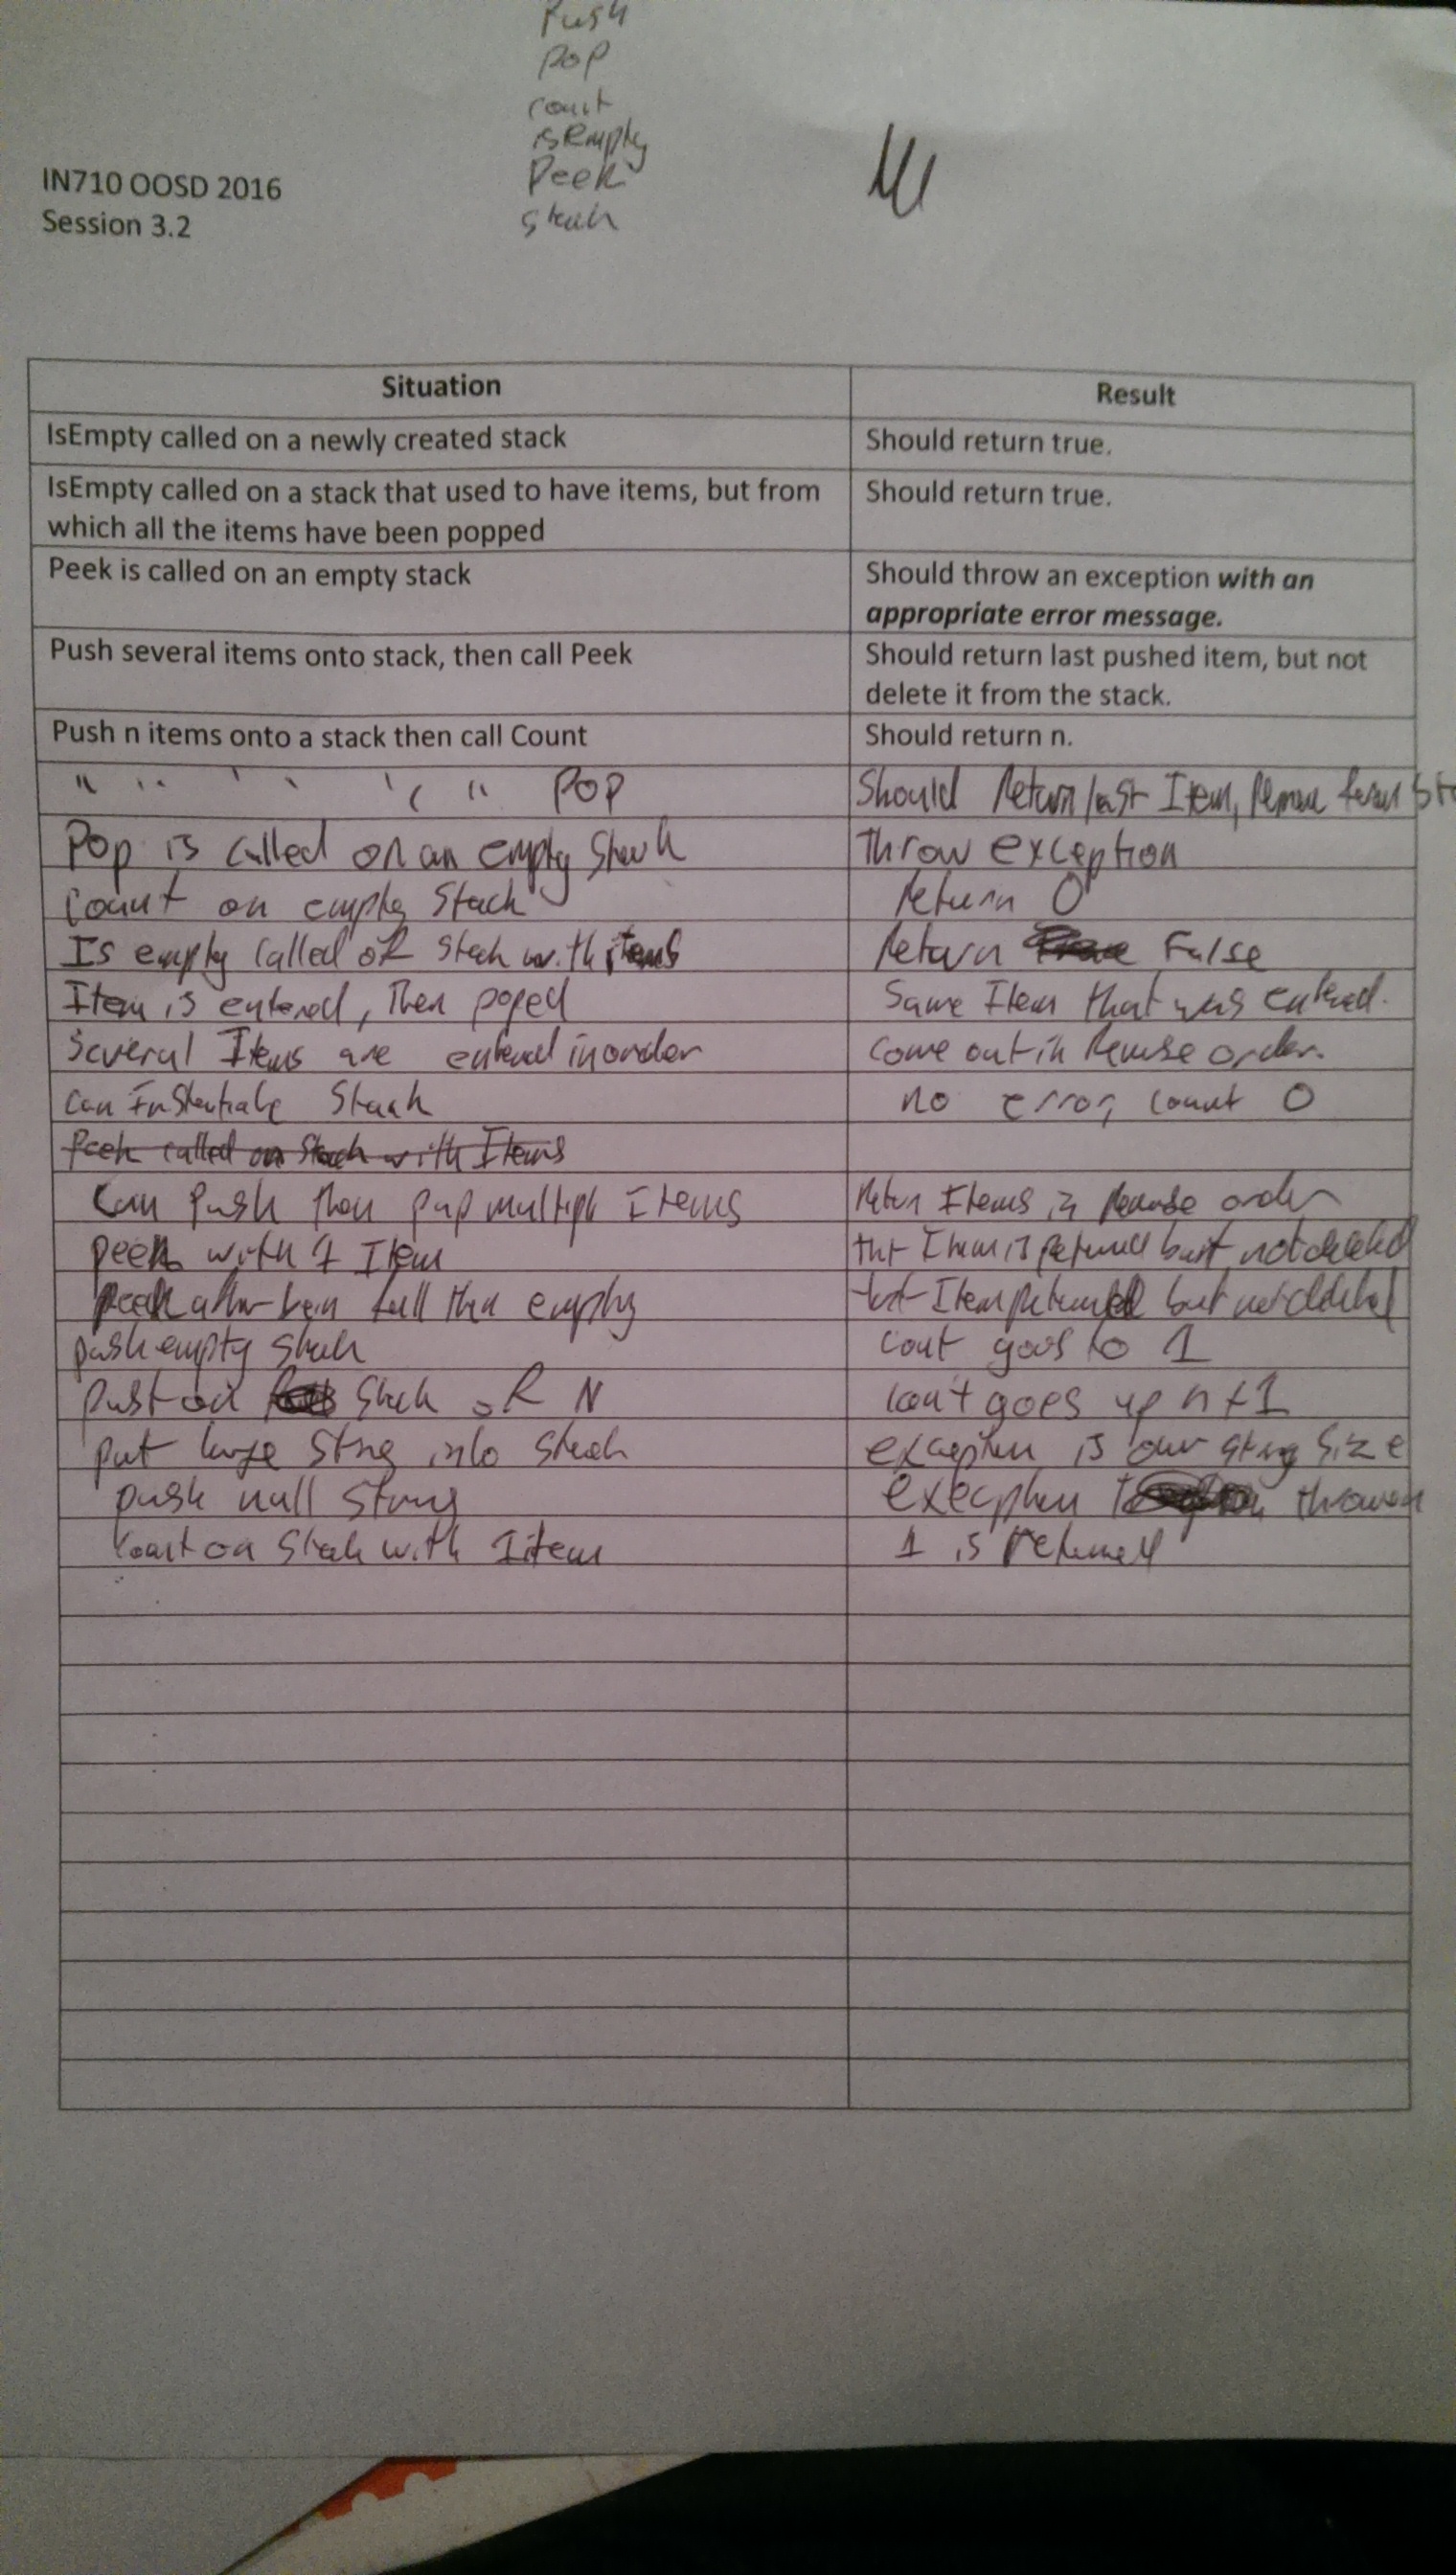 Push
pop
count
isEmpty
Peek
IN710 OOSD 2016
Session 3.2
Situation Result
IsEmpty called on a newly created stack Should return true.
IsEmpty called on a stack that used to have items, but from Should return true.
which all the items have been popped
Peek is called on an empty stack Should throw an exception with an
appropriate error message.
Push several items onto stack, then call Peek Should return last pushed item, but not
delete it from the stack.
Push n items onto a stack then call Count Should return n.
" " " " " " POP Should Return last Item,
Pop is called on an empty Stack throw exception
count on empty Stack return 0
Is empty called of Stack with items Return False
Item is entered, Then poped Same Item that was entered.
Several Items are entered in order come out in Reverse order.
can Stack no error, count 0
Peek called on Stack with Items
Can Push then pop multiple Items Items in Reverse order
peek with 1 Item Item is returned but not deleted
Peek full then empty Item returned but not
push empty Stack goes to 1
on Stack of N goes up n+1
put large into Stack is size
push null thrown
on Stack with 1 item 1 is returned